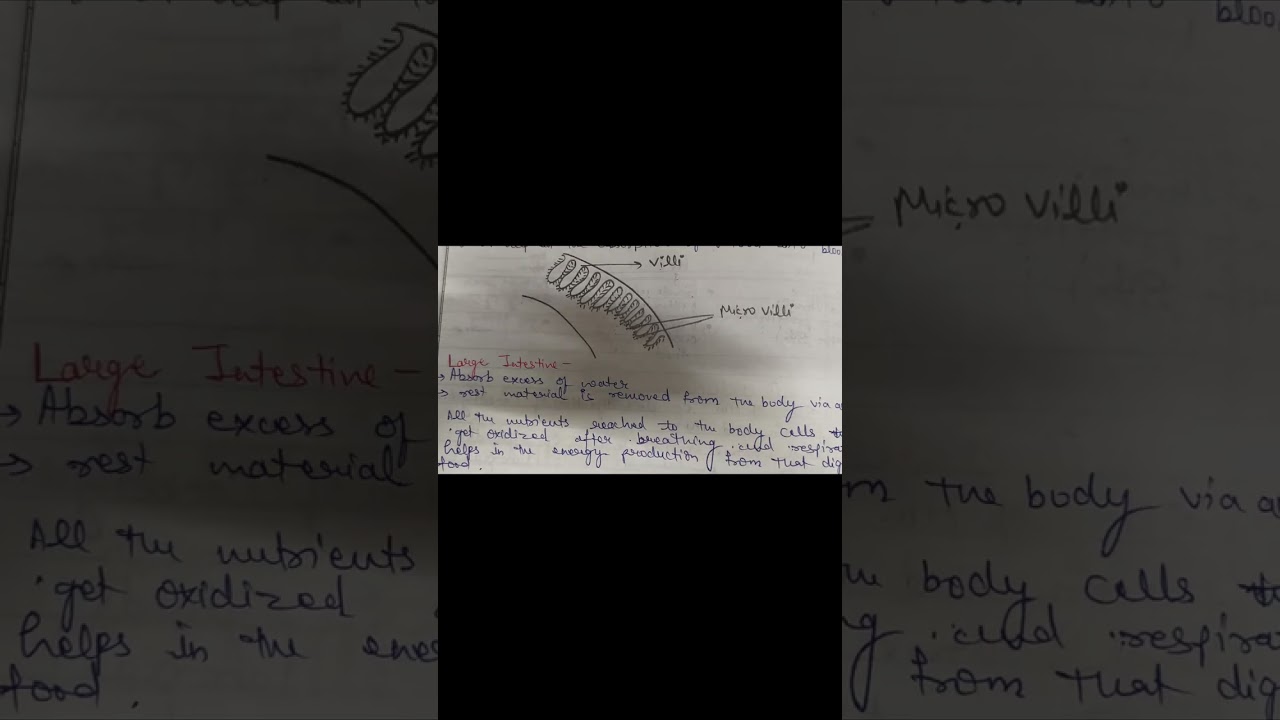 villi
Micro villi
Large Intestine -
→ Absorb excess of water
→ rest material is removed from the body via
All the nutrients reached to the body cells
get oxidized after breathing and
helps in the energy production from that
food.